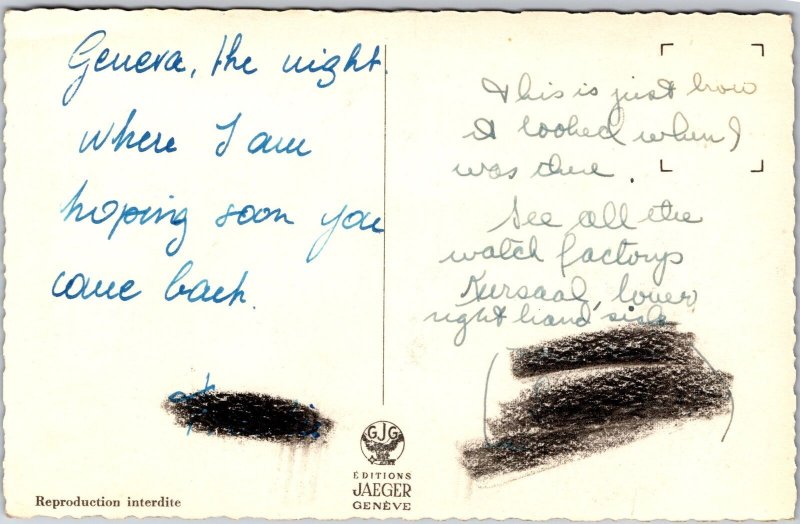 Geneva, the night.
where I am
hoping soon you
come back.
This is just how
it looked when I
was there.
See all the
watch factorys
Kursaal, lower
right hand side
GJG
ÉDITIONS
JAEGER
GENÈVE
Reproduction interdite